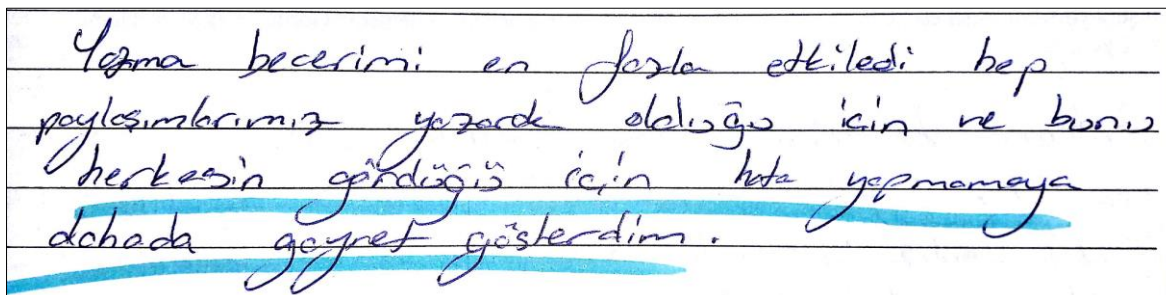 Yazma becerimi en fazla etkiledi hep
paylaşımlarımız yazarak olduğu için ve bunu
herkesin gördüğü için hata yapmamaya
dahada gayret gösterdim.